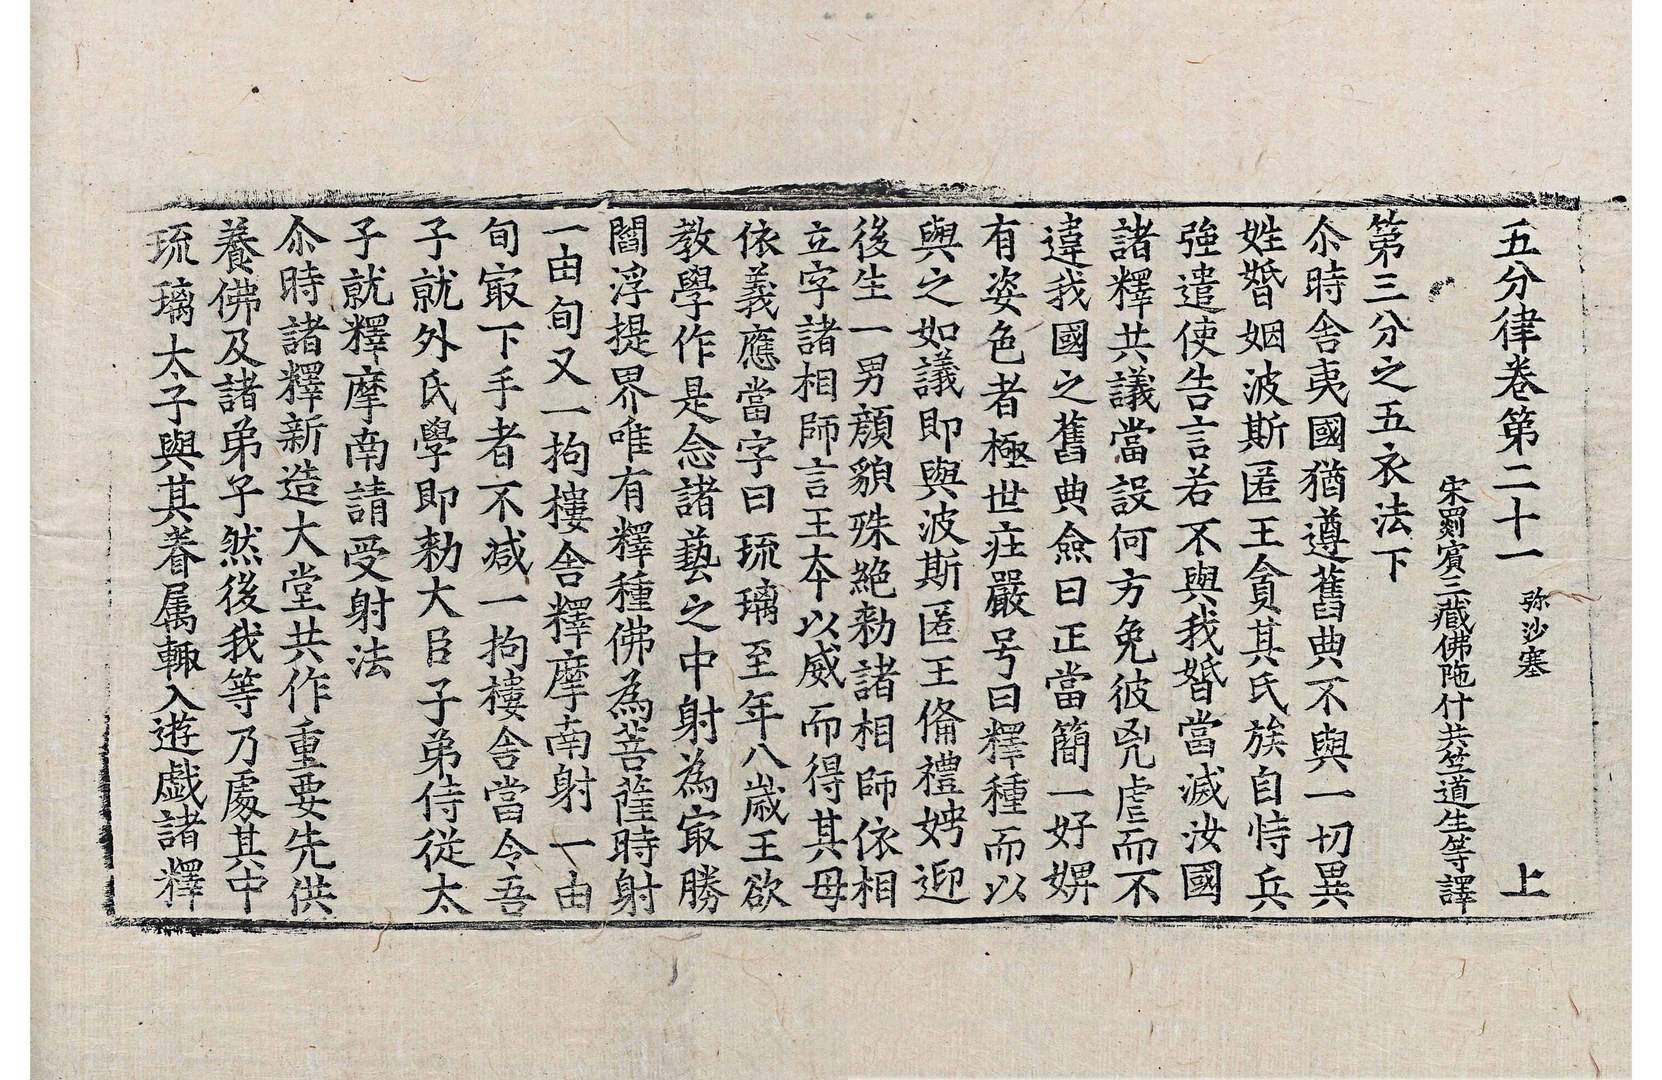 五分律卷第二十一 弥沙塞 上
宋罽賓三藏佛陁什共竺道生等譯
第三分之五衣法下
尒時舍夷國猶遵舊典不與一切異
姓婚姻波斯匿王貪其氏族自恃兵
強遣使告言若不與我婚當滅汝國
諸釋共議當設何方免彼兇虐而不
違我國之舊典僉曰正當簡一好婢
有姿色者極世庄嚴号曰釋種而以
與之如議即與波斯匿王俻禮娉迎
後生一男顏貌殊絶勑諸相師依相
立字諸相師言王夲以威而得其母
依義應當字曰琉璃至年八歳王欲
教學作是念諸藝之中射為㝡勝
閻浮提界唯有釋種佛為菩薩時射
一由旬又一拘樓舍釋摩南射一由
旬㝡下手者不减一拘樓舍當令吾
子就外氏學即勑大臣子弟侍從太
子就釋摩南請受射法
尒時諸釋新造大堂共作重要先供
養佛及諸弟子然後我等乃處其中
琉璃太子與其眷属輙入遊戯諸釋